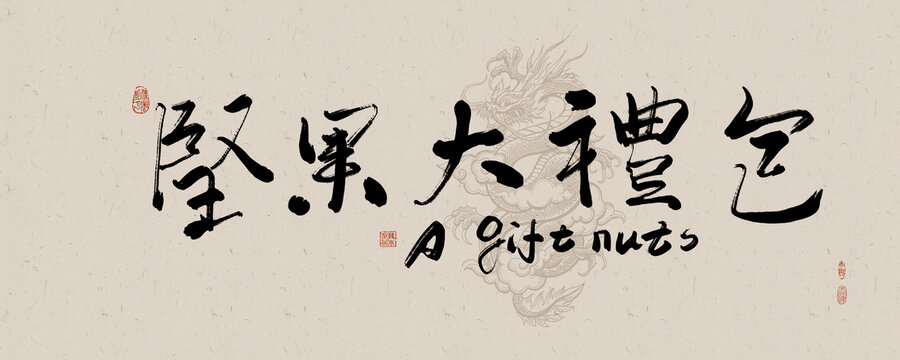 堅果大禮包
A gift nuts